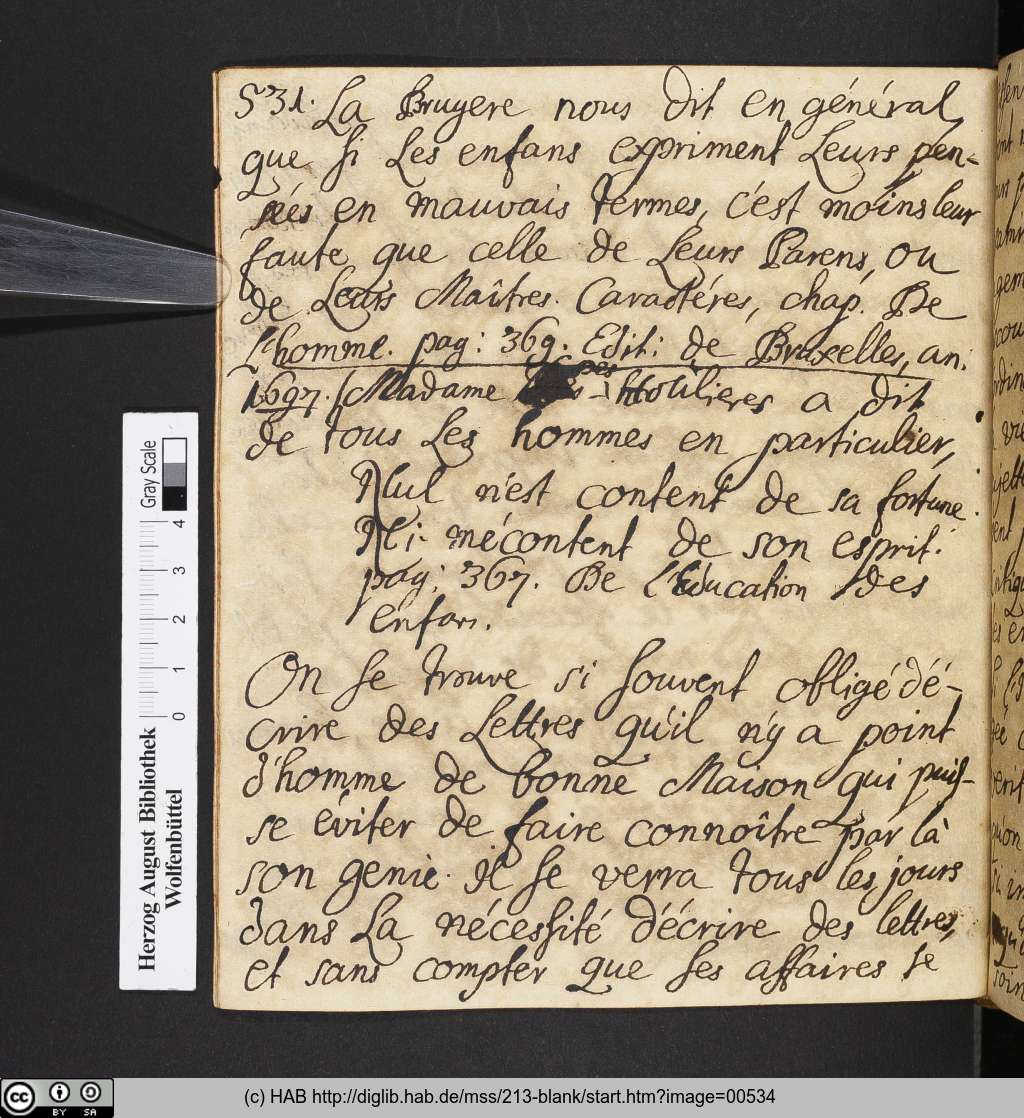 531. La Bruyere nous dit en général,
que si les enfans expriment leurs pen-
sées en mauvais termes, c'est moins leur
faute que celle de leurs Parens, ou
de leurs Maîtres. Caractéres, chap. De
l'homme. pag: 369. Edit: de Bruxelles, an.
1697. Madame des-Houlieres a dit
de tous les hommes en particulier,
Nul n'est content de sa fortune
Ni mécontent de son esprit.
pag: 367. De l'Education des
enfans.
On se trouve si souvent obligé d'é-
crire des lettres qu'il n'y a point
d'homme de bonne Maison qui puis-
se éviter de faire connoître par là
son genie. Il se verra tous les jours
dans la nécessité d'écrire des lettres,
et sans compter que ses affaires se
Herzog August Bibliothek
Wolfenbüttel
Gray Scale
0 1 2 3 4
cc BY SA
(c) HAB http://diglib.hab.de/mss/213-blank/start.htm?image=00534